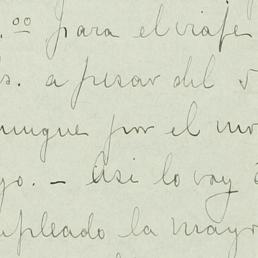 .00 para el viaje
s. a pesar del 5
aunque por el mo
go. - Asi lo voy a
mpleado la mayo